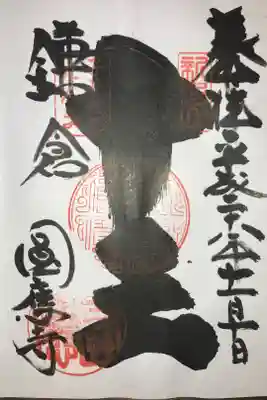 奉拝 平成二十八年十一月十日
十王
鎌倉
圓應寺